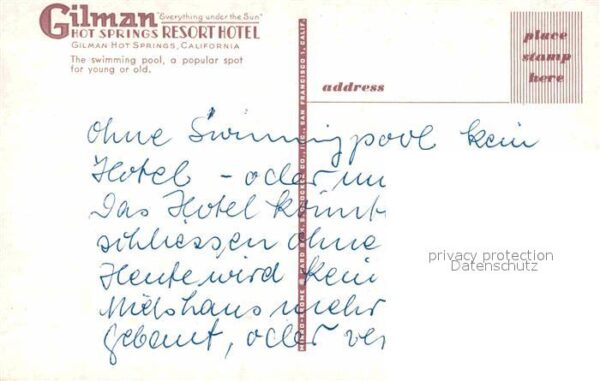 Gilman "Everything under the Sun"
HOT SPRINGS RESORT HOTEL
GILMAN HOT SPRINGS, CALIFORNIA
The swimming pool, a popular spot
for young or old.
place
stamp
here
address
ohne Swimmingpool kein
Hotel – oder nu
Das Hotel könnt
schliessen ohne
Heute wird kein
Mietshaus mehr
gebaut, oder ver
privacy protection
Datenschutz